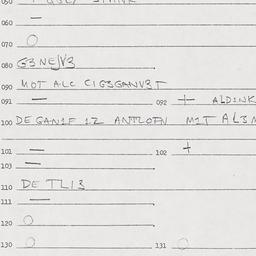 060 —
070 O
080 G3NEJV3
090 MOT ALC C1G3GANV3T
091 — 092 + ALDINK
100 DE GAN1F 1Z ANTLOFN M1T AL3N
101 — 102 +
103 —
110 DE TL13
111 —
120 O
130 O 131 O